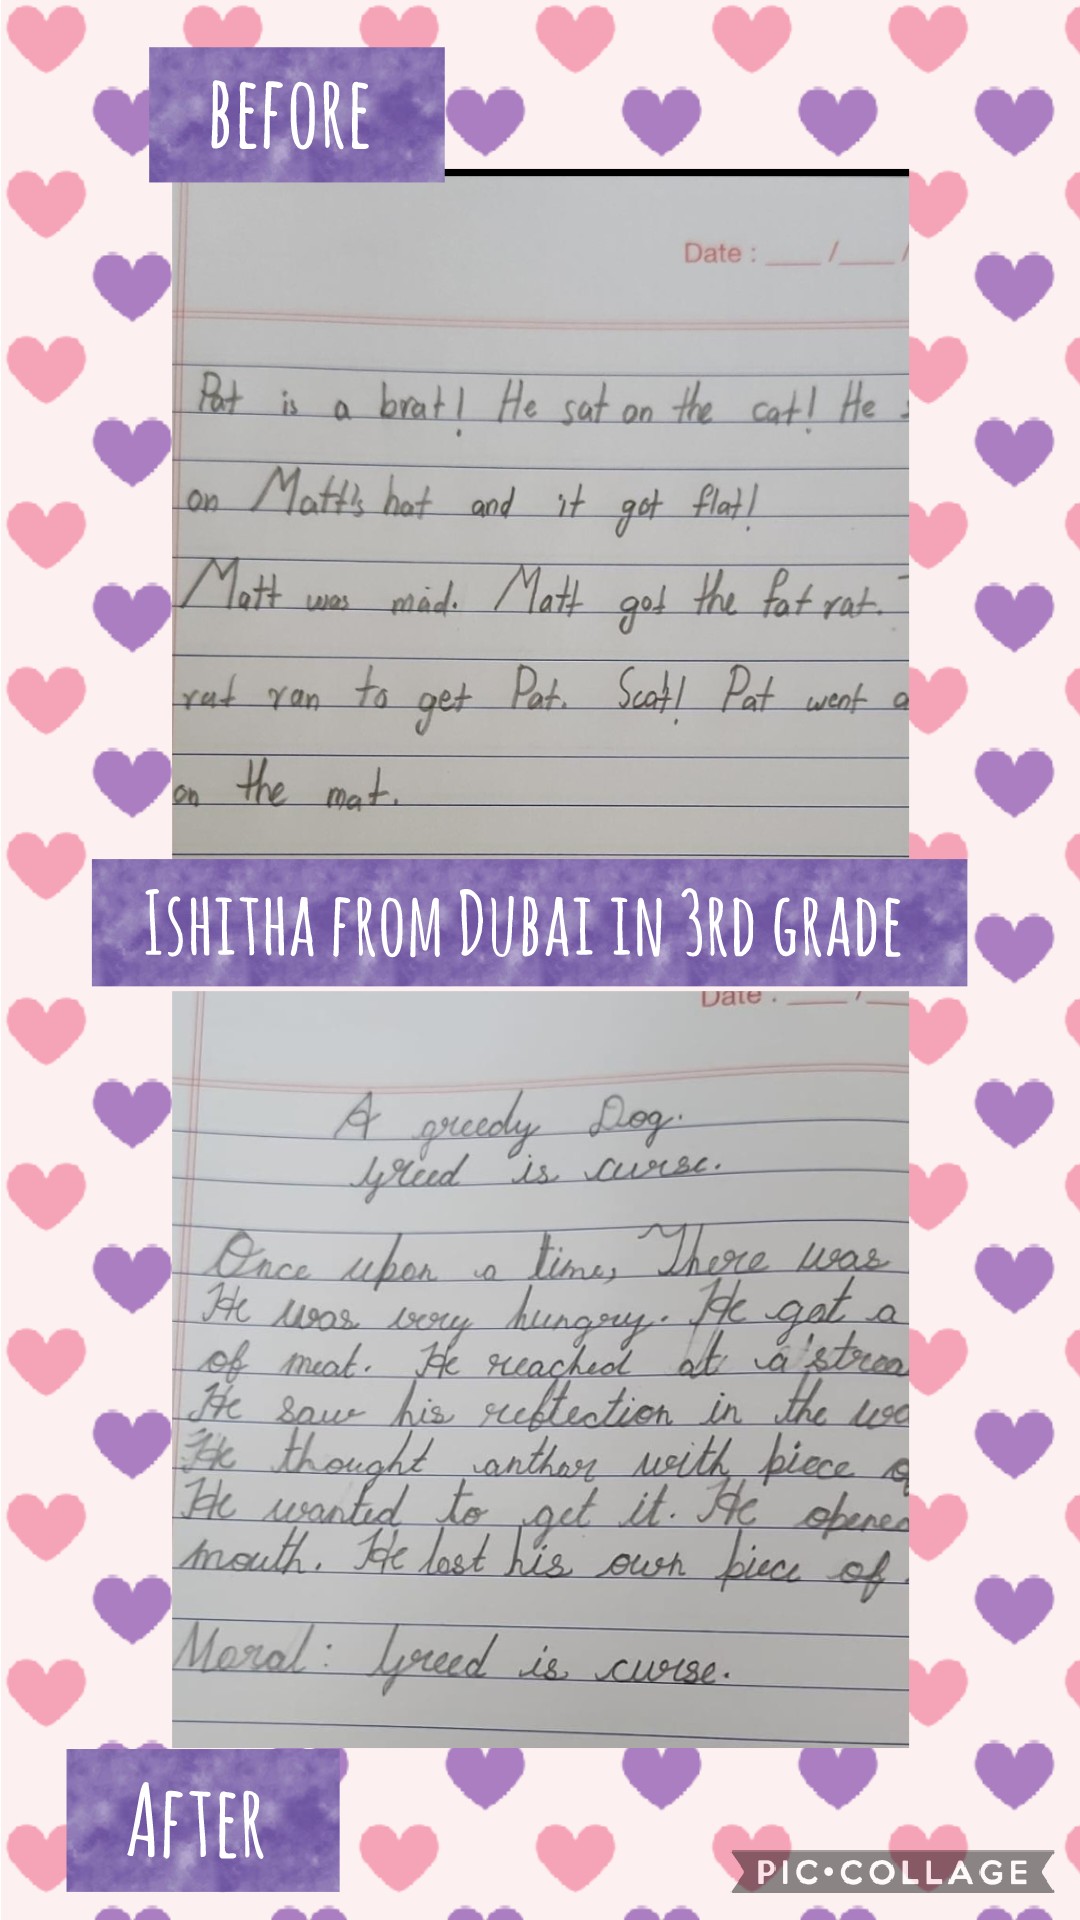 BEFORE
Date : ___ /___ /
Pat is a brat! He sat on the cat! He
on Matt's hat and it got flat!
Matt was mad. Matt got the fat rat.
rat ran to get Pat. Scat! Pat went a
on the mat.
ISHITHA FROM DUBAI IN 3RD GRADE
Date : ___ /___
A greedy Dog.
Greed is curse.
Once upon a time, There was
He was very hungry. He got a
of meat. He reached at a strea
He saw his reftection in the wa
He thought anthor with piece o
He wanted to get it. He opened
mouth. He lost his own piece of
Moral : Greed is curse.
AFTER
PIC•COLLAGE